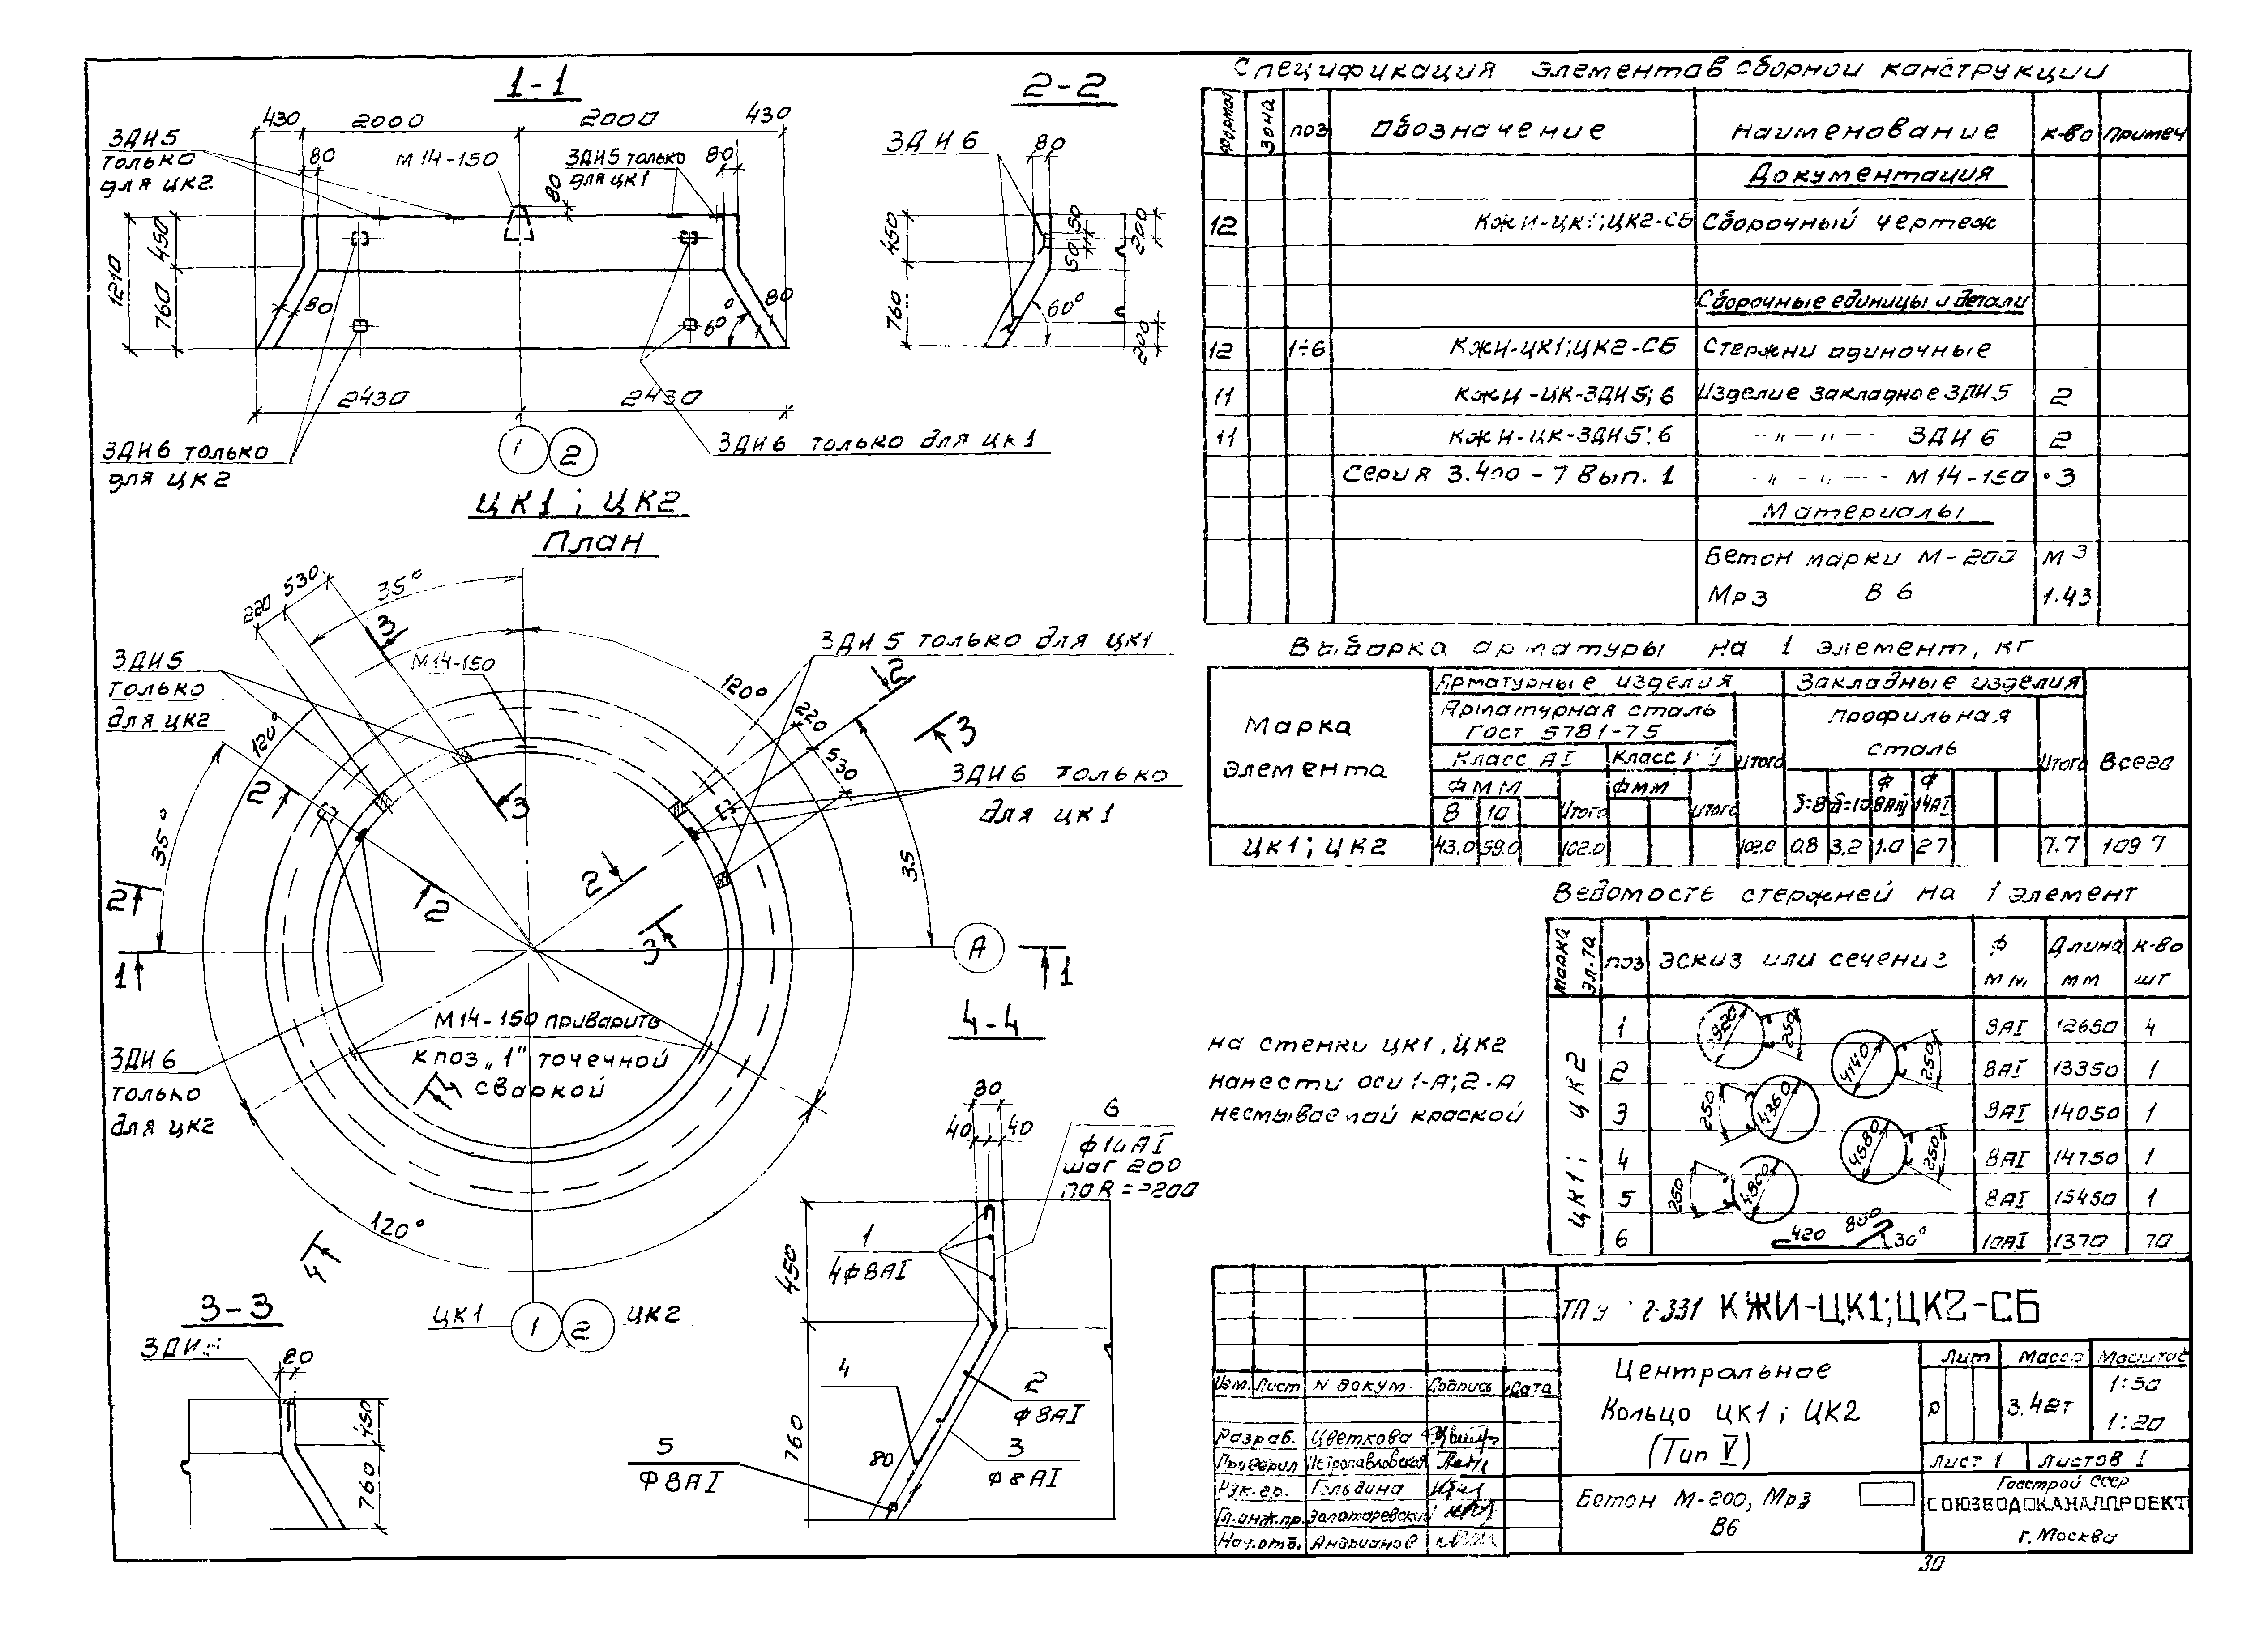 1-1
430
2000
2000
430
ЗДИ5
только
для ЦК2
80
М14-150
80
ЗДИ5 только
для ЦК1
80
1210
450
760
80
60°
80
2430
2430
ЗДИ6 только
для ЦК2
1
2
ЗДИ6 только для ЦК1
2-2
ЗДИ6
80
450
50
50
200
760
60°
200
ЦК1; ЦК2
План
530
220
35°
3
М14-150
ЗДИ5
только
для ЦК2
120°
ЗДИ5 только для ЦК1
2
120°
220
530
3
ЗДИ6 только
для ЦК1
2
35°
3
2
2
35
2
3
1
А
1
М14-150 приварить
к поз „1" точечной
сваркой
4
ЗДИ6
только
для ЦК2
120°
4
ЦК1
1
2
ЦК2
3-3
80
450
760
4-4
30
40
40
6
шаг 200
1
4ф8АI
450
4
2
ф8АI
760
80
3
ф8АI
5
ф8АI
Спецификация элементов сборной конструкции
Формат
Зона
поз
Обозначение
Наименование
к-во
примеч
Документация
12
КЖИ-ЦК1;ЦК2-СБ
Сборочный чертеж
Сборочные единицы и детали
12
1÷6
КЖИ-ЦК1;ЦК2-СБ
Стержни одиночные
11
КЖИ-ЦК-ЗДИ5;6
Изделие закладное ЗДИ5
2
11
КЖИ-ЦК-ЗДИ5;6
-"-"- ЗДИ6
2
Серия 3.400-7 Вып. 1
-"-"- М14-150
3
Материалы
Бетон марки М-200
м3
Мрз В6
1.43
Выборка арматуры на 1 элемент, кг
Марка
элемента
Арматурные изделия
Закладные изделия
Арматурная сталь
Гост 5781-75
профильная
сталь
Класс АI
Класс
итого
Итого
Всего
Фмм
Фмм
8
10
Итого
итого
δ=8
δ=10
ф
8АIII
ф
14АI
ЦК1; ЦК2
43.0
59.0
102.0
102.0
0.8
3.2
1.0
2 7
7.7
109 7
Ведомость стержней на 1 элемент
марка
эл.та
поз
Эскиз или сечение
ф
мм
Длина
мм
к-во
шт
ЦК1; ЦК2
1
250
12650
4
2
4140
250
8АI
13350
1
3
250
4360
14050
1
4
4580
250
8АI
14750
1
5
250
4800
8АI
15450
1
6
420
30°
10АI
1370
70
на стенки ЦК1, ЦК2
нанести оси 1-А; 2-А
несмываемой краской
2-331 КЖИ-ЦК1;ЦК2-СБ
Изм.
Лист
N докум.
Подпись
Дата
Разраб.
Цветкова
Проверил
Петропавловская
Рук.гр.
Гольдина
Гл.инж.пр.
Золотаревский
Нач.отд.
Андрианов
Центральное
Кольцо ЦК1; ЦК2
(Тип V)
Лит
Масса
Масштаб
Р
3.42т
1:50
1:20
Лист 1
Листов 1
Бетон М-200, Мрз
В6
Госстрой СССР
СОЮЗВОДОКАНАЛПРОЕКТ
г. Москва
30